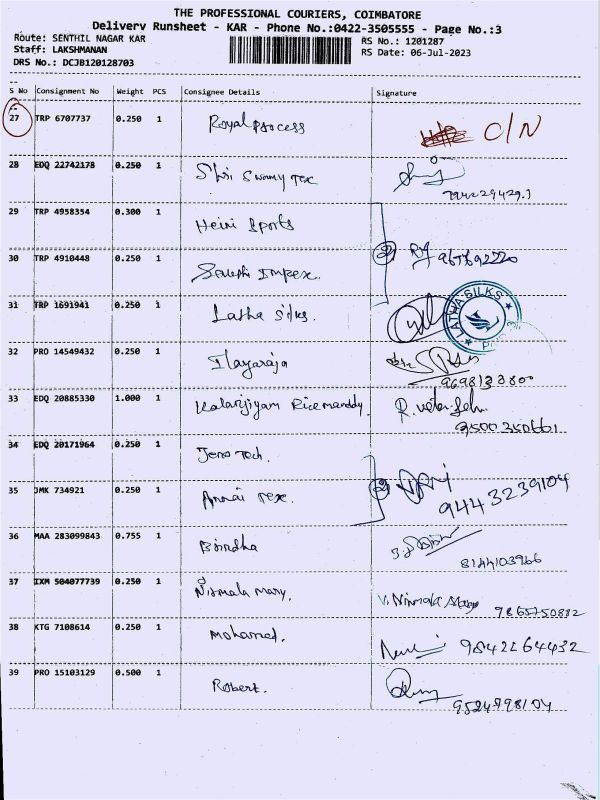 THE PROFESSIONAL COURIERS, COIMBATORE
Delivery Runsheet - KAR - Phone No.:0422-3505555 - Page No.:3
Route: SENTHIL NAGAR KAR
RS No.: 1201287
Staff: LAKSHMANAN
RS Date: 06-Jul-2023
DRS No.: DCJB120128703
S No Consignment No Weight PCS Consignee Details Signature
27 TRP 6707737 0.250 1 Royal Process C/N
28 EDQ 22742178 0.250 1 Shri Swamy Tex
29 TRP 4958354 0.300 1 Heini Sports
30 TRP 4910448 0.250 1 Impex.
31 TRP 1691941 0.250 1 Latha Silks. LATHA SILKS
32 PRO 14549432 0.250 1 Ilayaraja
9698133800
33 EDQ 20885330 1.000 1 Kalanjiyam Ricemanddy.
34 EDQ 20171964 0.250 1 Jeno Tech.
35 JMK 734921 0.250 1 Annai Tex. 9443239104
36 MAA 283099843 0.755 1 Brindha
8144103966
37 IXM 504077739 0.250 1 Nirmala Mary. V. Nirmala Mary 9865750882
38 KTG 7108614 0.250 1 Mohamed. 9842264432
39 PRO 15103129 0.500 1 Robert.
9524798104